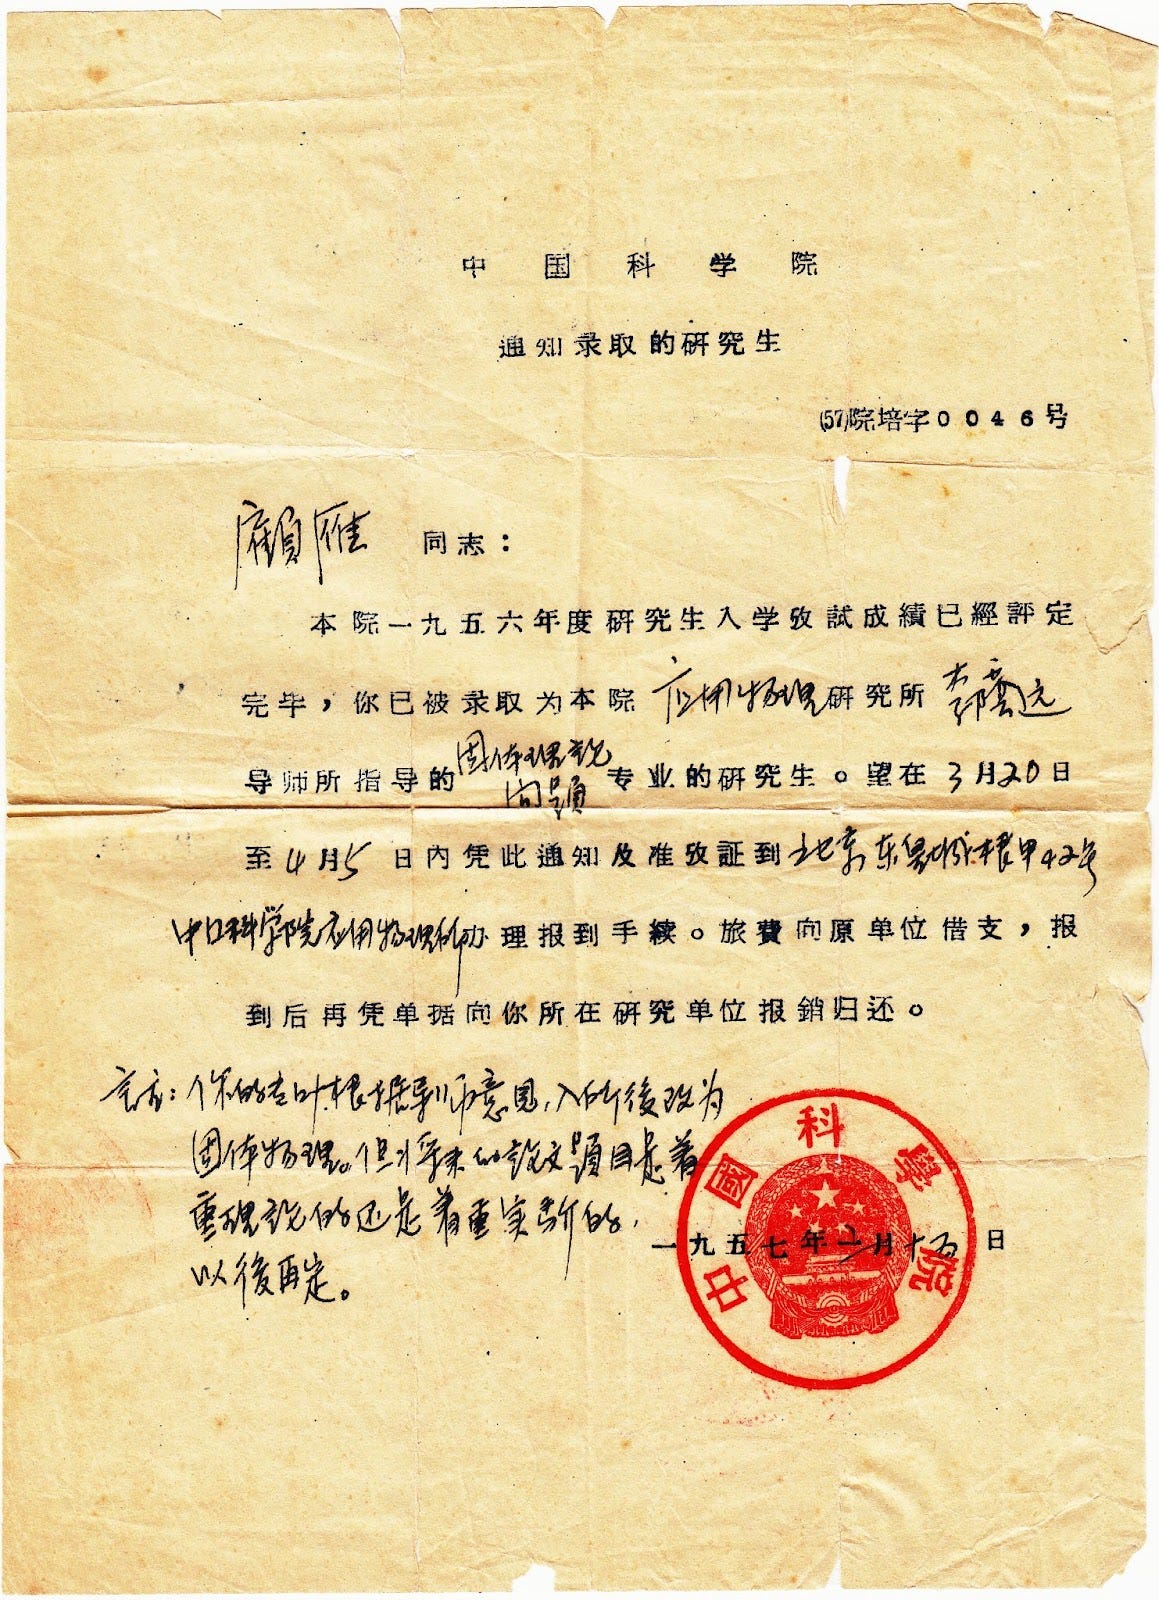 中国科学院
通知录取的研究生
(57)院培字0046号
顾雁 同志：
本院一九五六年度研究生入学攷試成績已經評定
完毕，你已被录取为本院 应用物理 研究所
导师所指导的 固体理论问题 专业的研究生。望在3月20日
至4月5日內凭此通知及准攷証到 北京东皇城根甲42号
中国科学院应用物理所 办理报到手續。旅費向原单位借支，报
到后再凭单据向你所在研究单位报銷归还。
你的专业根据导师意见，入所後改为
固体物理。但将来的论文题目是着
重理论的还是着重实际的，
以後再定。
一九五七年二月十五日
中國科學院